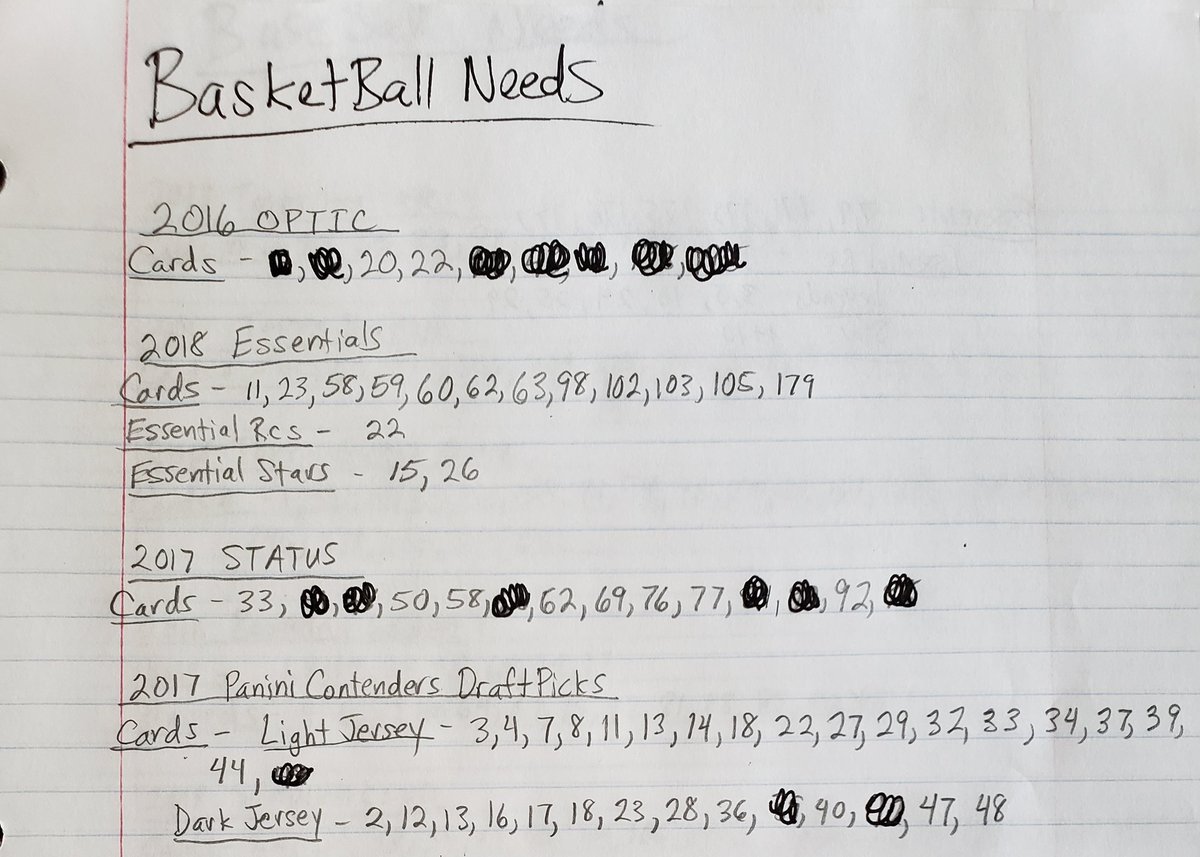 BasketBall Needs
2016 OPTIC
Cards - , , 20, 22, , , , ,
2018 Essentials
Cards - 11, 23, 58, 59, 60, 62, 63, 98, 102, 103, 105, 179
Essential Rcs - 22
Essential Stars - 15, 26
2017 STATUS
Cards - 33, , , 50, 58, , 62, 69, 76, 77, , , 92,
2017 Panini Contenders Draft Picks
Cards - Light Jersey - 3, 4, 7, 8, 11, 13, 14, 18, 22, 27, 29, 32, 33, 34, 37, 39,
44,
Dark Jersey - 2, 12, 13, 16, 17, 18, 23, 28, 36, , 40, , 47, 48